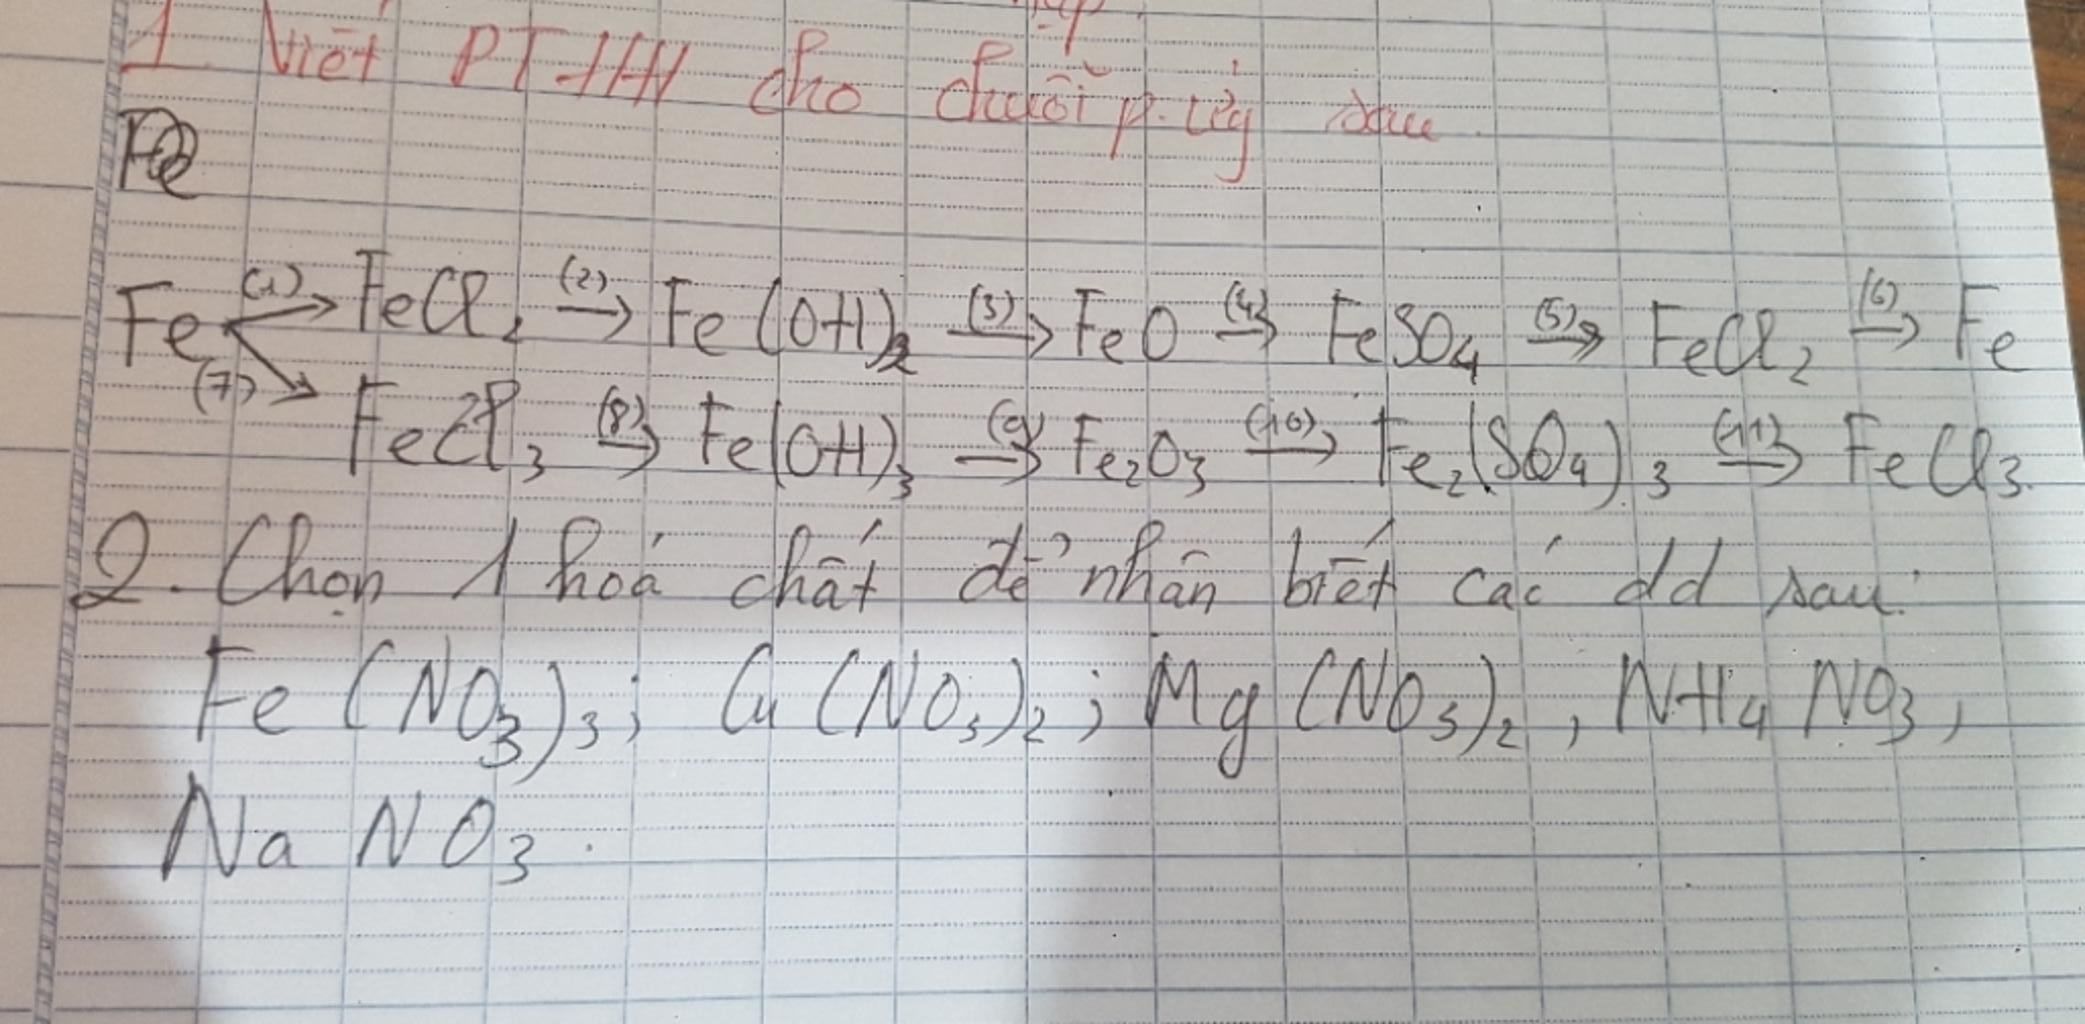 1. Viết PTHH cho chuỗi p.ứg sau
Fe
Fe (1)→ FeCl2 (2)→ Fe(OH)2 (3)→ FeO (4)→ FeSO4 (5)→ FeCl2 (6)→ Fe
(7)→ FeCl3 (8)→ Fe(OH)3 (9)→ Fe2O3 (10)→ Fe2(SO4)3 (11)→ FeCl3.
2. Chọn 1 hoá chất để nhận biết các dd sau:
Fe(NO3)3; Cu(NO3)2; Mg(NO3)2, NH4NO3,
NaNO3.